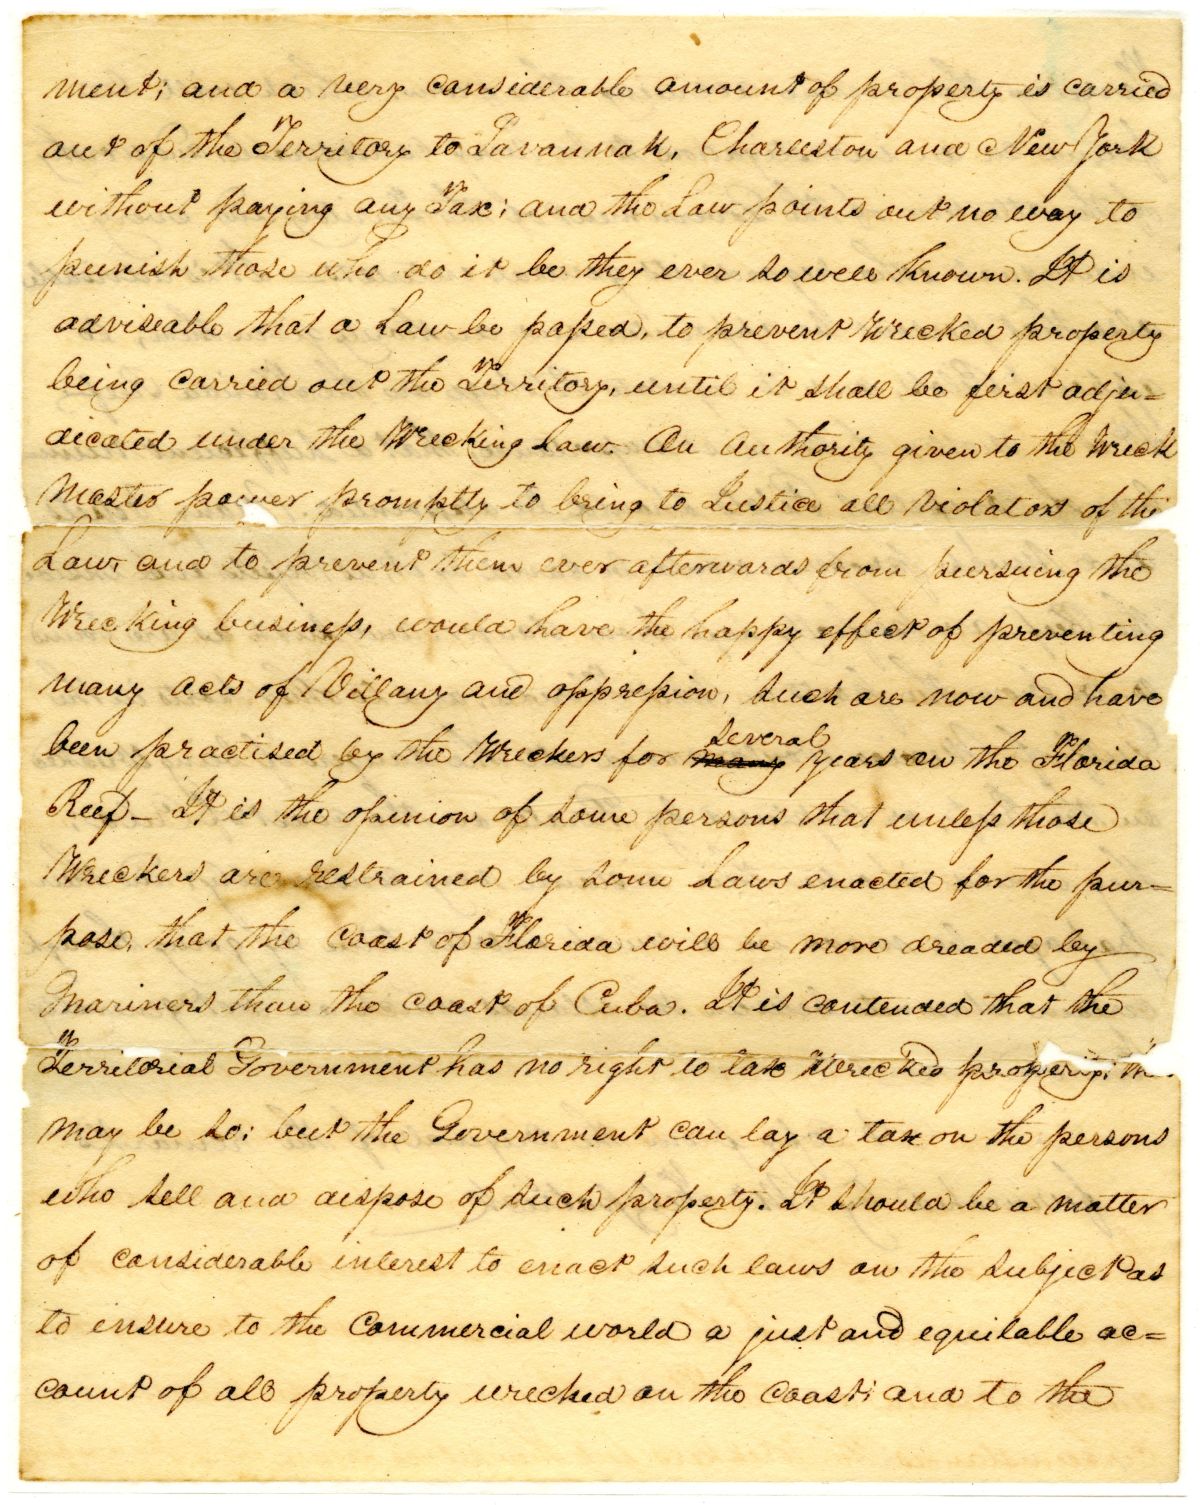 ment; and a very considerable amount of property is carried
out of the Territory to Savannah, Charleston and New York
without paying any Tax; and the Law points out no way to
punish those who do it be they ever so well known. It is
adviseable that a Law be passed, to prevent Wrecked property
being carried out the Territory, until it shall be first adju=
dicated under the Wrecking law. An Authority given to the Wreck
Master power promptly to bring to Justice all violators of the
Law, and to prevent them ever afterwards from pursuing the
Wrecking business, would have the happy effect of preventing
many acts of Villany and oppression, such are now and have
been practised by the Wreckers for many several years on the Florida
Reef_ It is the opinion of some persons that unless those
Wreckers are restrained by some Laws enacted for the pur=
pose, that the coast of Florida will be more dreaded by
Mariners than the coast of Cuba. It is contended that the
Territorial Government has no right to tax Wrecked property;
may be so; but the Government can lay a tax on the persons
who sell and dispose of such property. It should be a matter
of considerable interest to enact such laws on the subject as
to ensure to the Commercial world a just and equitable ac=
count of all property wrecked on the coast; and to the